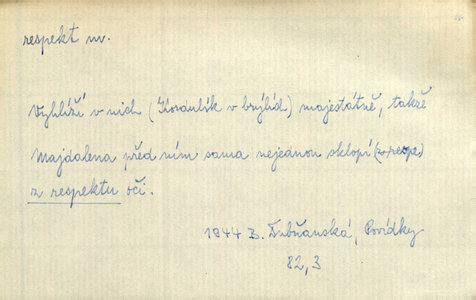 respekt m.
Vyhlíží v nich (Koranlík v brýlích) majestátně, takže
Majdalena před ním sama nejednou sklopí (z respe)
z respektu oči.
1844 B. Dubňanská, Povídky
82,3